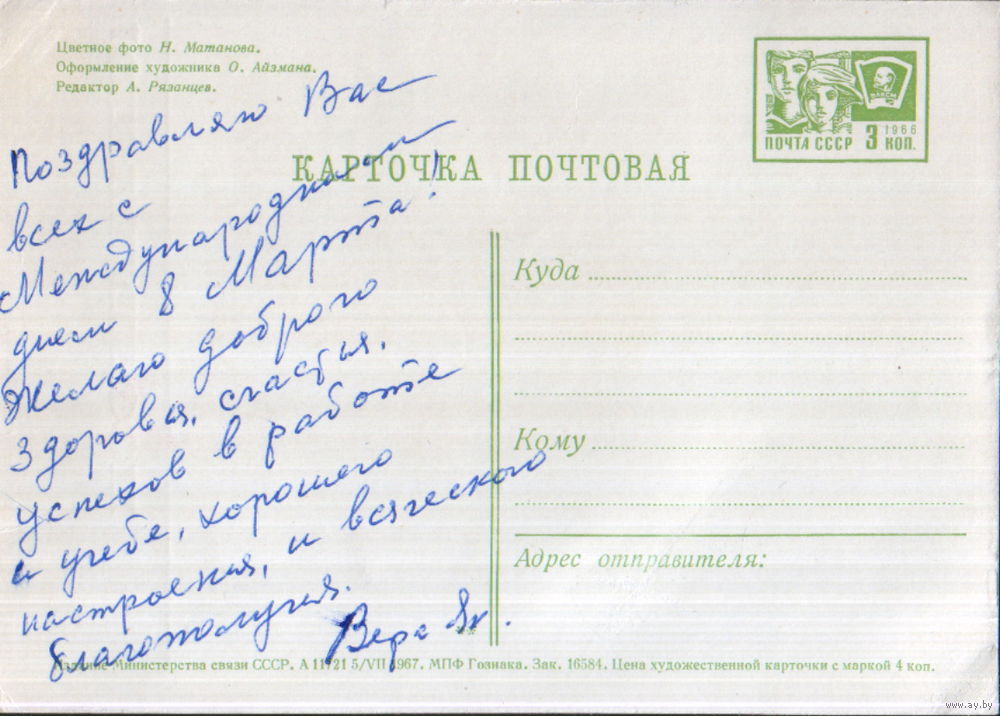 Цветное фото Н. Матанова.
Оформление художника О. Айзмана.
Редактор А. Рязанцев.
ПОЧТА СССР 3 КОП.
1966
ВЛКСМ
КАРТОЧКА ПОЧТОВАЯ
Поздравляю Вас
всех с
Международным
днем 8 Марта!
Желаю доброго
здоровья, счастья,
успехов в работе
и учебе, хорошего
настроения, и всяческого
благополучия.
Вера
Куда
Кому
Адрес отправителя:
Издание Министерства связи СССР. А 11721 5/VII 1967. МПФ Гознака. Зак. 16584. Цена художественной карточки с маркой 4 коп.
www.ay.by